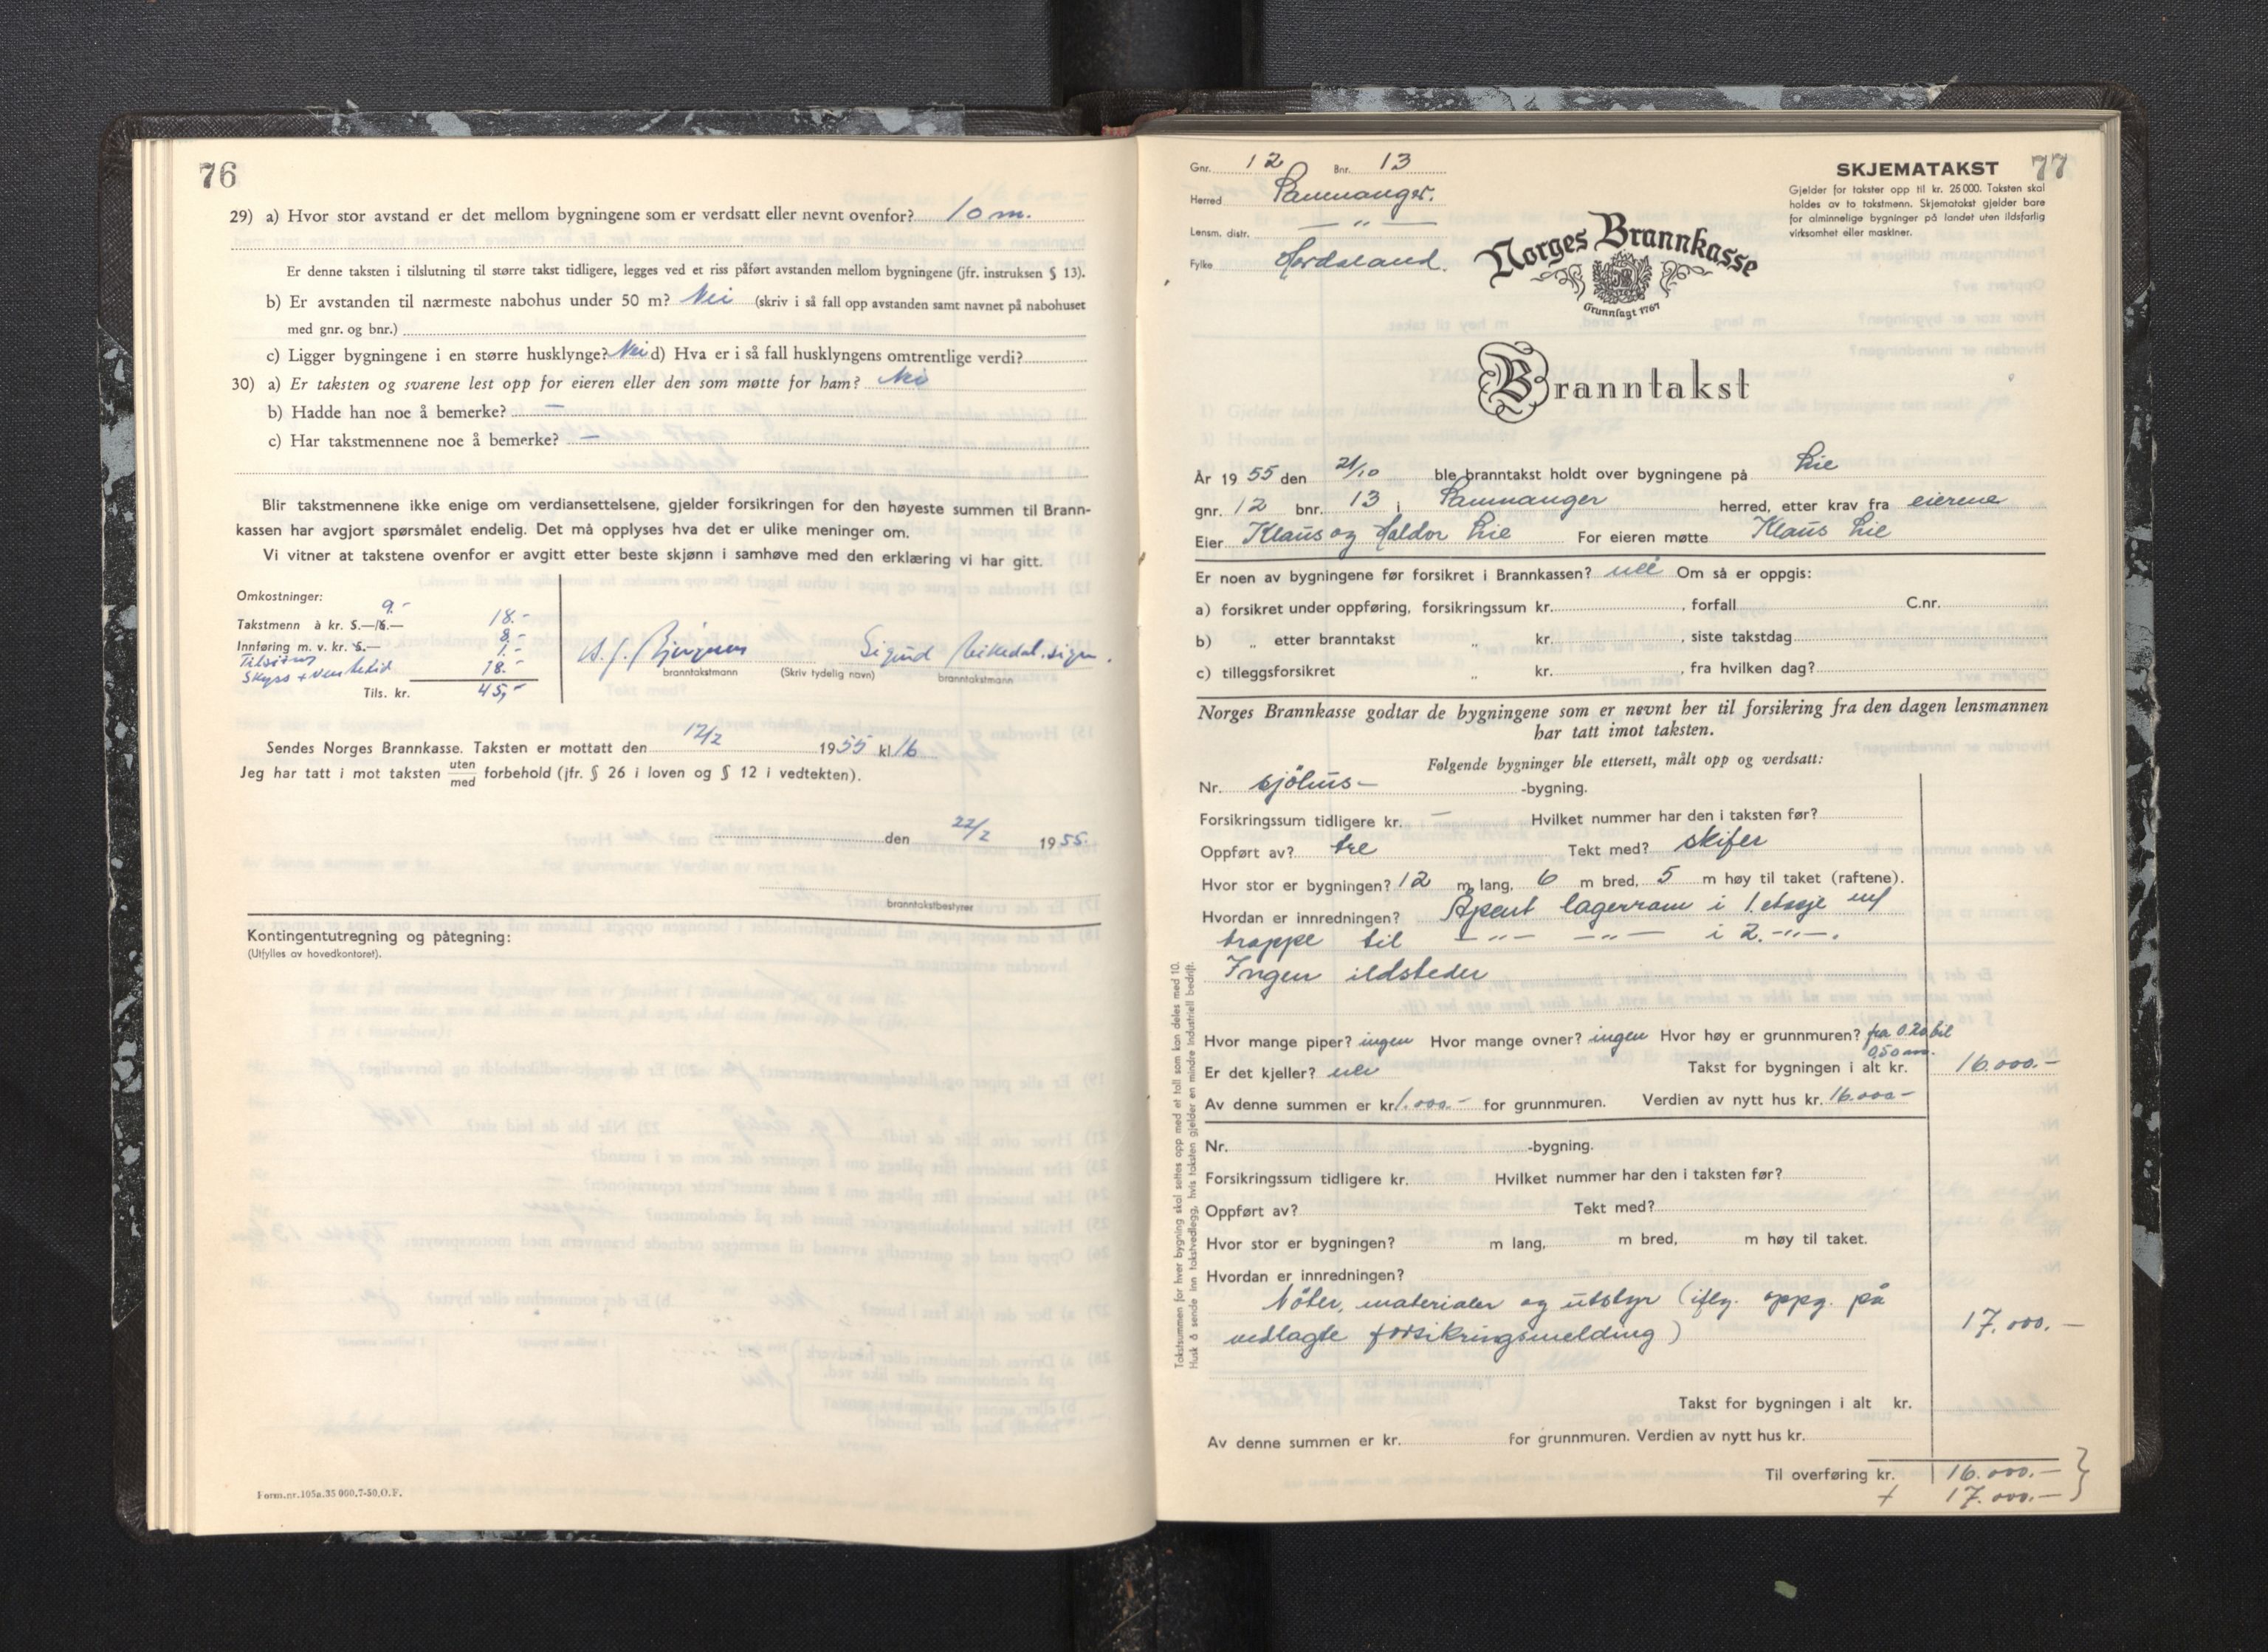 76
29) a) Hvor stor avstand er det mellom bygningene som er verdsatt eller nevnt ovenfor? 10 m.
Er denne taksten i tilslutning til større takst tidligere, legges ved et riss påført avstanden mellom bygningene (jfr. instruksen § 13).
b) Er avstanden til nærmeste nabohus under 50 m? Nei (skriv i så fall opp avstanden samt navnet på nabohuset
med gnr. og bnr.)
c) Ligger bygningene i en større husklynge? Nei d) Hva er i så fall husklyngens omtrentlige verdi?
30) a) Er taksten og svarene lest opp for eieren eller den som møtte for ham? Nei
b) Hadde han noe å bemerke? —
c) Har takstmennene noe å bemerke? —
Blir takstmennene ikke enige om verdiansettelsene, gjelder forsikringen for den høyeste summen til Brann-
kassen har avgjort spørsmålet endelig. Det må opplyses hva det er ulike meninger om.
Vi vitner at takstene ovenfor er avgitt etter beste skjønn i samhøve med den erklæring vi har gitt.
Omkostninger:
9.-
Takstmenn à kr. 5.—/6.— 18.-
Innføring m. v. kr. 5.— 8.-
1.-
Skyss + ventetid 18.-
Tils. kr. 45,-
Sigurd sign.
branntakstmann (Skriv tydelig navn) branntakstmann
Sendes Norges Brannkasse. Taksten er mottatt den 12/2 1955 kl 16
Jeg har tatt i mot taksten uten/med forbehold (jfr. § 26 i loven og § 12 i vedtekten).
den 22/2 1955.
branntakstbestyrer
Kontingentutregning og påtegning:
(Utfylles av hovedkontoret).
Form.nr.105a.35 000.7-50.O.F.
77
Gnr. 12 Bnr. 13
Herred Samnanger.
Lensm. distr. — " —
Fylke Hordaland.
SKJEMATAKST
Gjelder for takster opp til kr. 25 000. Taksten skal
holdes av to takstmenn. Skjematakst gjelder bare
for alminnelige bygninger på landet uten ildsfarlig
virksomhet eller maskiner.
Norges Brannkasse
Grunnlagt 1767
Branntakst
År 1955 den 21/10 ble branntakst holdt over bygningene på Lie
gnr. 12 bnr. 13 i Samnanger herred, etter krav fra eierene
Eier Klaus og Haldor Lie For eieren møtte Klaus Lie
Er noen av bygningene før forsikret i Brannkassen? nei Om så er oppgis:
a) forsikret under oppføring, forsikringssum kr. , forfall C.nr.
b) „ etter branntakst „ kr. , siste takstdag
c) tilleggsforsikret „ kr. , fra hvilken dag?
Norges Brannkasse godtar de bygningene som er nevnt her til forsikring fra den dagen lensmannen
har tatt imot taksten.
Følgende bygninger ble ettersett, målt opp og verdsatt:
Nr. sjöhus- -bygning.
Forsikringssum tidligere kr. — Hvilket nummer har den i taksten før?
Oppført av? tre Tekt med? skifer
Hvor stor er bygningen? 12 m lang, 6 m bred, 5 m høy til taket (raftene).
Hvordan er innredningen? Åpent lagerrom i 1. etasje m/
trappe til — " — — " — i 2. -"-.
Ingen ildsteder
Hvor mange piper? ingen Hvor mange ovner? ingen Hvor høy er grunnmuren? fra 0.20 til
0,50 m.
Er det kjeller? nei Takst for bygningen i alt kr. 16.000.-
Av denne summen er kr 1.000.- for grunnmuren. Verdien av nytt hus kr. 16.000-
Nr. -bygning.
Forsikringssum tidligere kr. Hvilket nummer har den i taksten før?
Oppført av? Tekt med?
Hvor stor er bygningen? m lang, m bred, m høy til taket.
Hvordan er innredningen?
Nöter, materialer og utstyr (iflg. oppg. på
vedlagte forsikringsmelding) 17.000.-
Takst for bygningen i alt kr.
Av denne summen er kr. for grunnmuren. Verdien av nytt hus kr.
Til overføring kr. 16.000.-
+ 17.000.-
Takstsummen for hver bygning skal settes opp med et tall som kan deles med 10.
Husk å sende inn takstvedlegg, hvis taksten gjelder en mindre industriell bedrift.